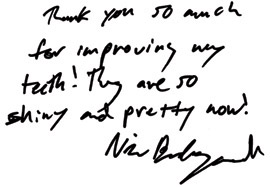 Thank you so much
for improving my
teeth! They are so
shiny and pretty now!